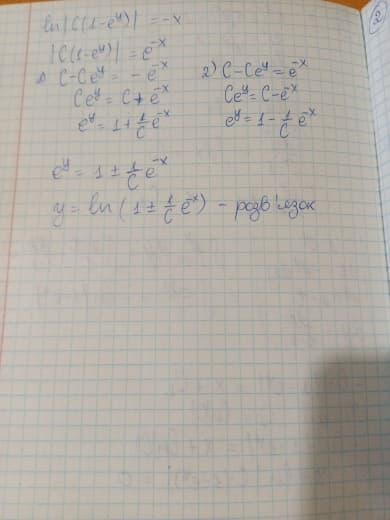 2
ln|C(1-e^y)| = -x
|C(1-e^y)| = e^-x
1) C-Ce^y = -e^-x 2) C-Ce^y = e^-x
Ce^y = C+e^-x Ce^y = C-e^-x
e^y = 1+1/C e^-x e^y = 1-1/C e^-x
e^y = 1 ± 1/C e^-x
y = ln(1 ± 1/C e^-x) - розв'язок